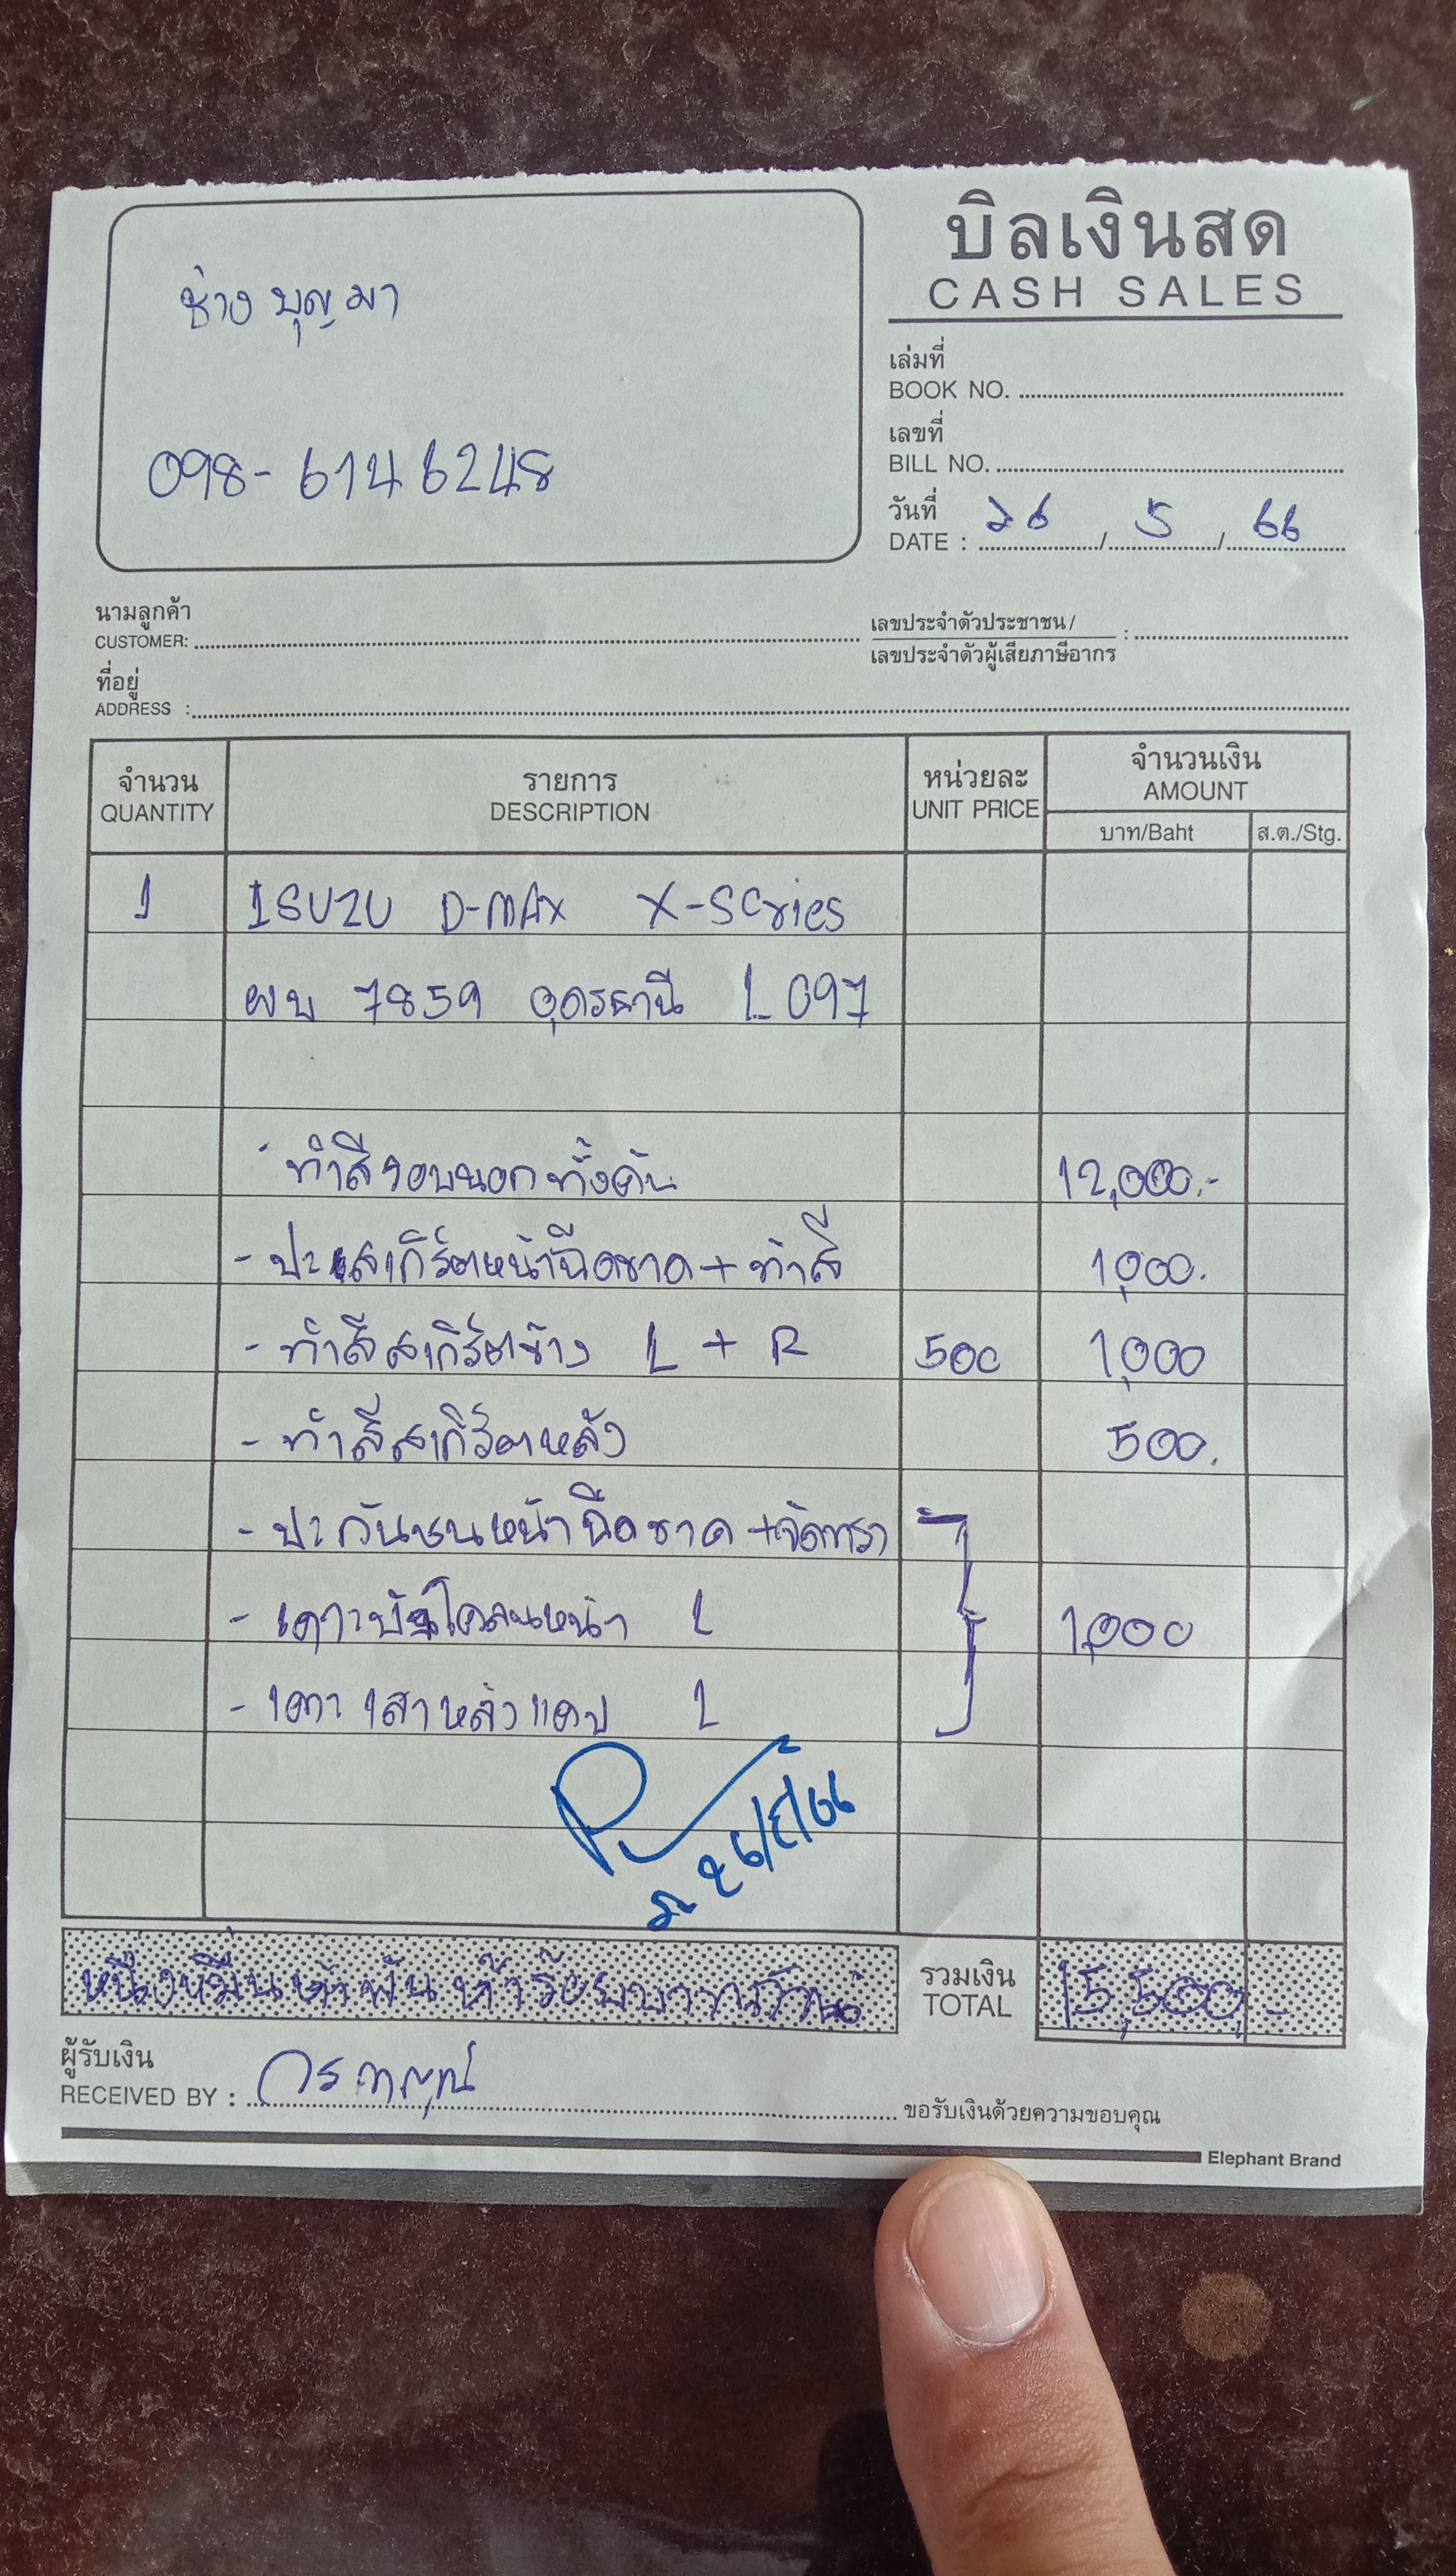 บิลเงินสด
CASH SALES
ช่าง บุญมา
098-6146248
เล่มที่
BOOK NO.
เลขที่
BILL NO.
วันที่
DATE : 26 / 5 / 66
นามลูกค้า
CUSTOMER:
เลขประจำตัวประชาชน /
เลขประจำตัวผู้เสียภาษีอากร :
ที่อยู่
ADDRESS :
จำนวน รายการ หน่วยละ จำนวนเงิน
QUANTITY DESCRIPTION UNIT PRICE AMOUNT
บาท/Baht ส.ต./Stg.
1 ISUZU D-MAX X-Series
ผบ 7859 อุดรธานี L097
- ทำสีรอบนอกทั้งคัน 12,000.-
- ปะสเกิร์ตหน้าฉีดขาด + ทำสี 1,000.
- ทำสีสเกิร์ตข้าง L + R 500 1,000
- ทำสีสเกิร์ตหลัง 500.
- ปะกันชนหน้าฉีดขาด +
- เคาะบังโคลนหน้า L 1,000
- เคาะเสาหลังแคป L
26/5/66
หนึ่งหมื่นห้าพันห้าร้อยบาทถ้วน
รวมเงิน
TOTAL 15,500.-
ผู้รับเงิน
RECEIVED BY :
ขอรับเงินด้วยความขอบคุณ
Elephant Brand